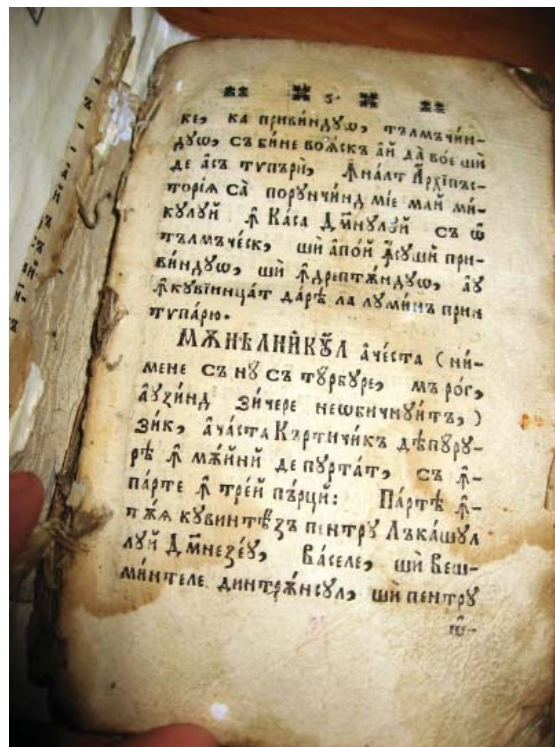 ѕ
ке, ка привиндуѡ, тълмъчи́н-
дуѡ, съ бине воѧ́скъ а҆й да̀ во́е шѝ
де а҆съ тѵпърѝ, ꙟ҆на́лт А҆рхїпъс-
торїѧ са̀ порꙋнчи́нд мїе май ми-
кꙋлꙋй ꙟ҆ Ка́са Дм҃нꙋлꙋй съ ѡ҆
тълмъче́ск, шѝ а҆по́й ꙟ҆сꙋшѝ при-
виндуѡ, шѝ ꙟ҆дрептѫ́ндуѡ, а҆ꙋ
ꙟ҆кꙋвїинца́т да́рѣ ла лꙋми́нъ прин
тѵпа́рю.
МѪНѢЛНИКꙊЛ а҆че́ста (ни-
мене съ нꙋ съ тꙋ́рбꙋре, мъ ро́г,
а҆ꙋзи́нд зи́чере неѡбичнꙋи́тъ,)
зи́к, а҆ча́ста Къртичи́къ дѣпꙋрꙋ-
рѣ ꙟ҆ мѫ́йнй де пꙋрта́т, съ ꙟ҆-
па́рте ꙟ҆ тре́й пъ́рцй: Па́ртѣ ꙟ҆-
тѫѧ кꙋвинтѣ́зъ пентрꙋ Лъка́шꙋл
лꙋй Дм҃незе́ꙋ, Ва́селе, шѝ Веш-
ми́нтеле динтрѫ́нсꙋл, шѝ пентрꙋ
ѡ҆-